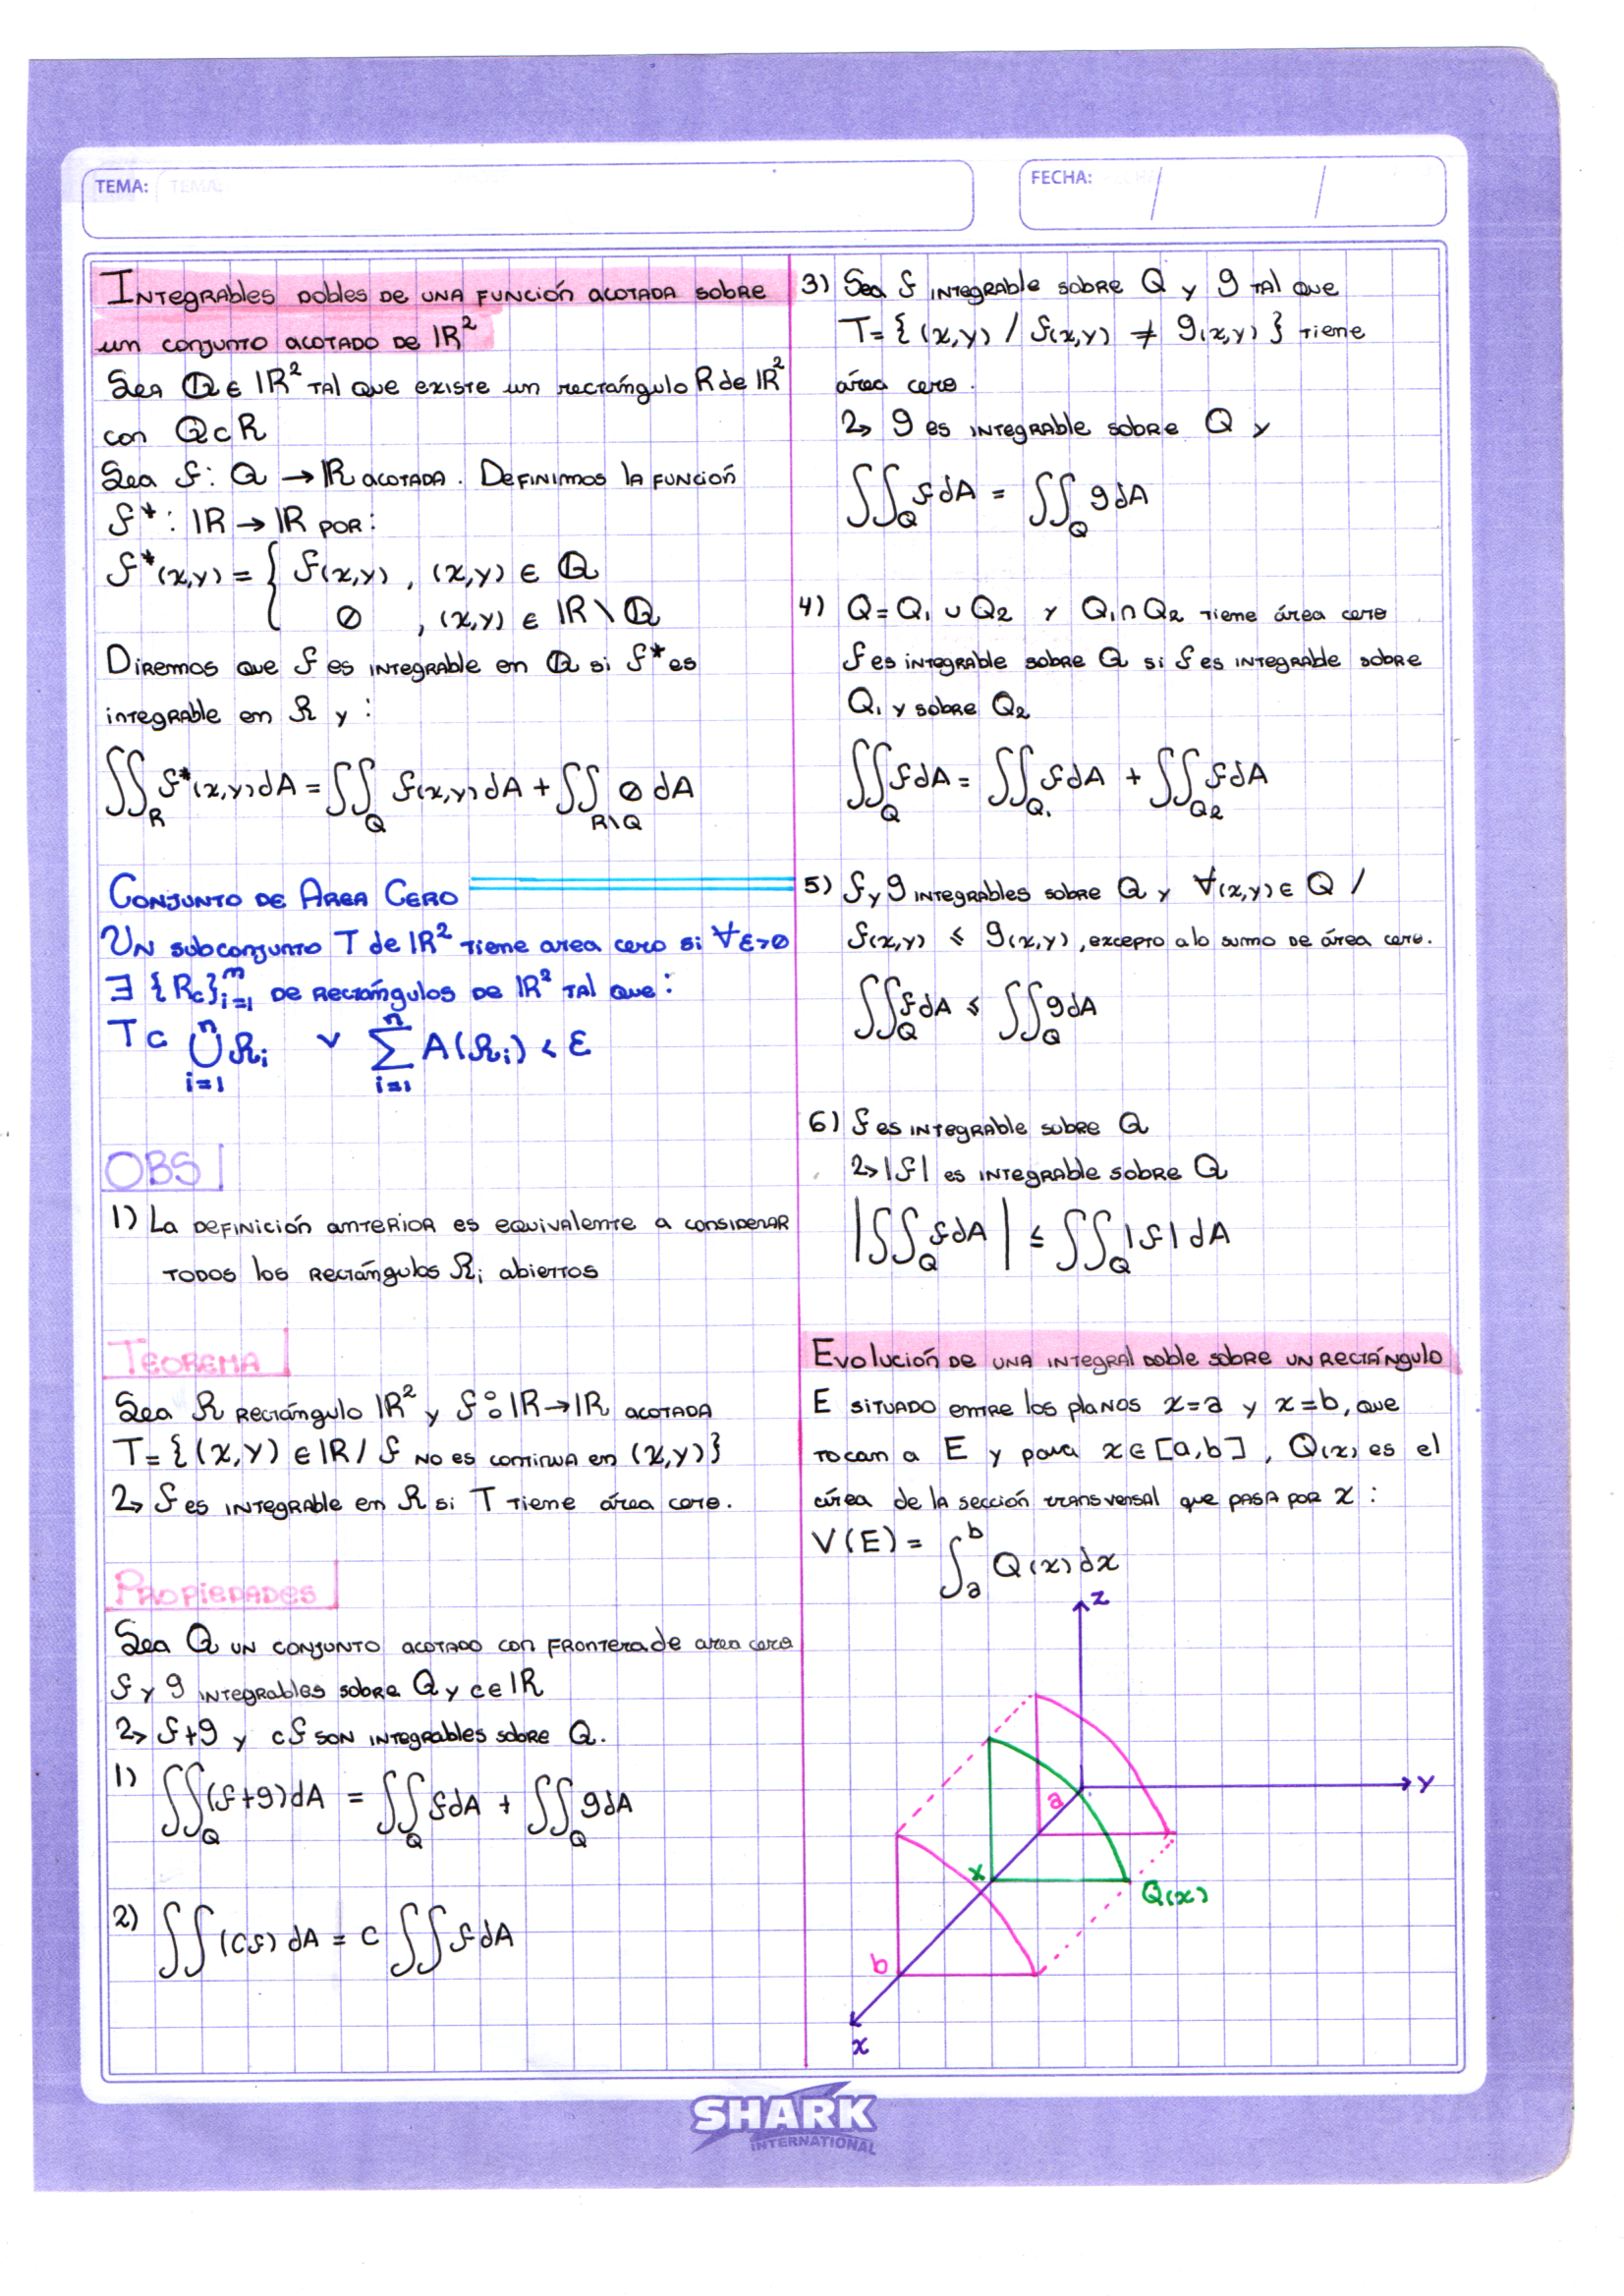 TEMA:
FECHA: / /
Integrables dobles de una función acotada sobre
un conjunto acotado de IR²
Sea Q ∈ IR² tal que existe un rectángulo R de IR²
con Q ⊂ R
Sea f: Q → IR acotada. Definimos la función
f* : IR → IR por:
f*(x,y) = { f(x,y) , (x,y) ∈ Q
0 , (x,y) ∈ IR \ Q
Diremos que f es integrable en Q si f* es
integrable en R y :
∬_R f*(x,y) dA = ∬_Q f(x,y) dA + ∬_{R\Q} 0 dA
Conjunto de Area Cero
Un subconjunto T de IR² tiene area cero si ∀ε>0
∃ {Rc}ᵐᵢ₌₁ de rectángulos de IR² tal que:
T ⊂ ⋃ⁿᵢ₌₁ Rᵢ v ∑ⁿᵢ₌₁ A(Rᵢ) < ε
OBS
1) La definición anterior es equivalente a considerar
todos los rectángulos Rᵢ abiertos
Teorema
Sea R rectángulo IR² y f: IR → IR acotada
T = { (x,y) ∈ IR / f no es continua en (x,y) }
2> f es integrable en R si T tiene área cero.
Propiedades
Sea Q un conjunto acotado con frontera de area cero
f y g integrables sobre Q y c ∈ IR
2> f+g y cf son integrables sobre Q.
1) ∬_Q (f+g) dA = ∬_Q f dA + ∬_Q g dA
2) ∬ (cf) dA = c ∬ f dA
3) Sea f integrable sobre Q y g tal que
T = { (x,y) / f(x,y) ≠ g(x,y) } tiene
área cero.
2> g es integrable sobre Q y
∬_Q f dA = ∬_Q g dA
4) Q = Q₁ ∪ Q₂ y Q₁ ∩ Q₂ tiene área cero
f es integrable sobre Q si f es integrable sobre
Q₁ y sobre Q₂
∬_Q f dA = ∬_Q₁ f dA + ∬_Q₂ f dA
5) f y g integrables sobre Q y ∀(x,y) ∈ Q /
f(x,y) ≤ g(x,y), excepto a lo sumo de área cero.
∬_Q f dA ≤ ∬_Q g dA
6) f es integrable sobre Q
2> |f| es integrable sobre Q
|∬_Q f dA| ≤ ∬_Q |f| dA
Evolución de una integral doble sobre un rectángulo
E situado entre los planos x=a y x=b, que
tocan a E y para x ∈ [a,b], Q(x) es el
área de la sección transversal que pasa por x :
V(E) = ∫ₐᵇ Q(x) dx
z
y
a
x
Q(x)
b
x
SHARK
INTERNATIONAL